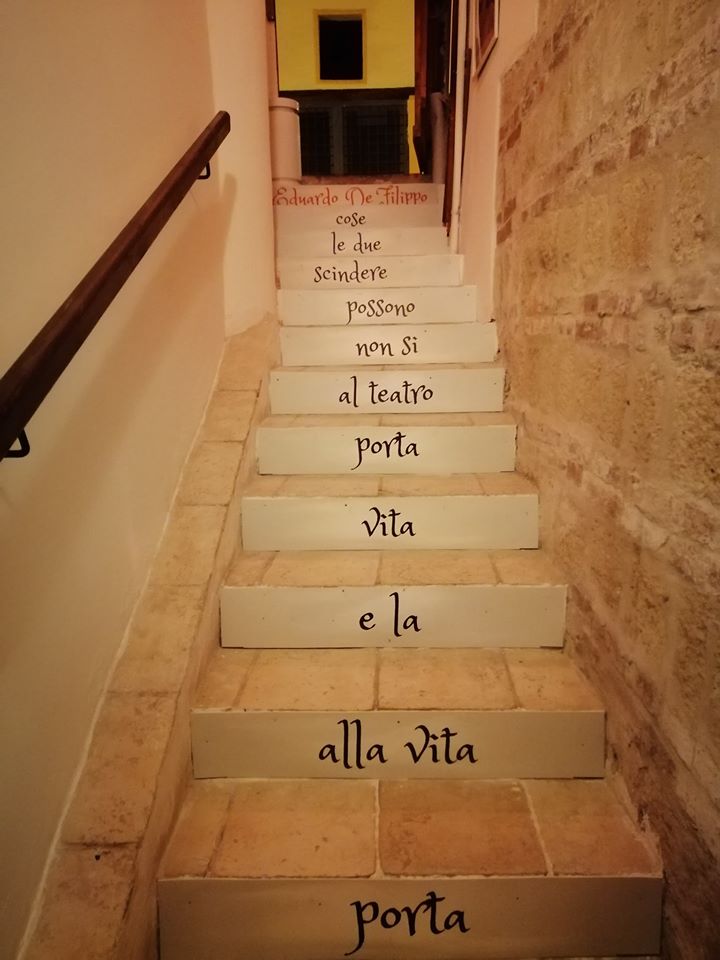 porta
alla vita
e la
vita
porta
al teatro
non si
possono
scindere
le due
cose
Eduardo De Filippo